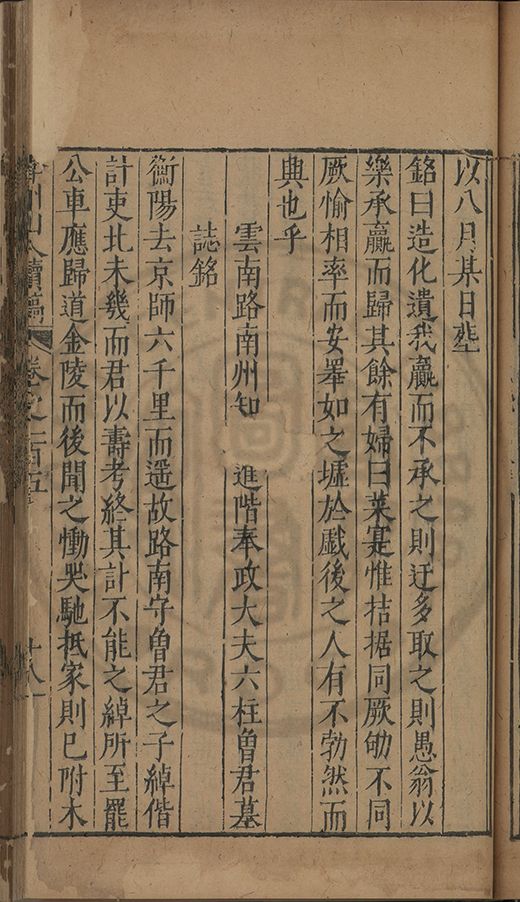 以八月某日塟
銘曰造化遺我羸而不承之則迂多取之則愚翁以
樂承羸而歸其餘有婦曰萊寔惟拮据同厥劬不同
厥愉相率而安睪如之墟於戲後之人有不勃然而
興也乎
雲南路南州知 進階奉政大夫六柱魯君墓
誌銘
衡陽去京師六千里而遥故路南守魯君之子綽偕
計吏北未幾而君以壽考終其計不能之綽所至罷
公車應歸道金陵而後聞之慟哭馳抵家則已附木
弇州山人續稿 卷之一百五 十八